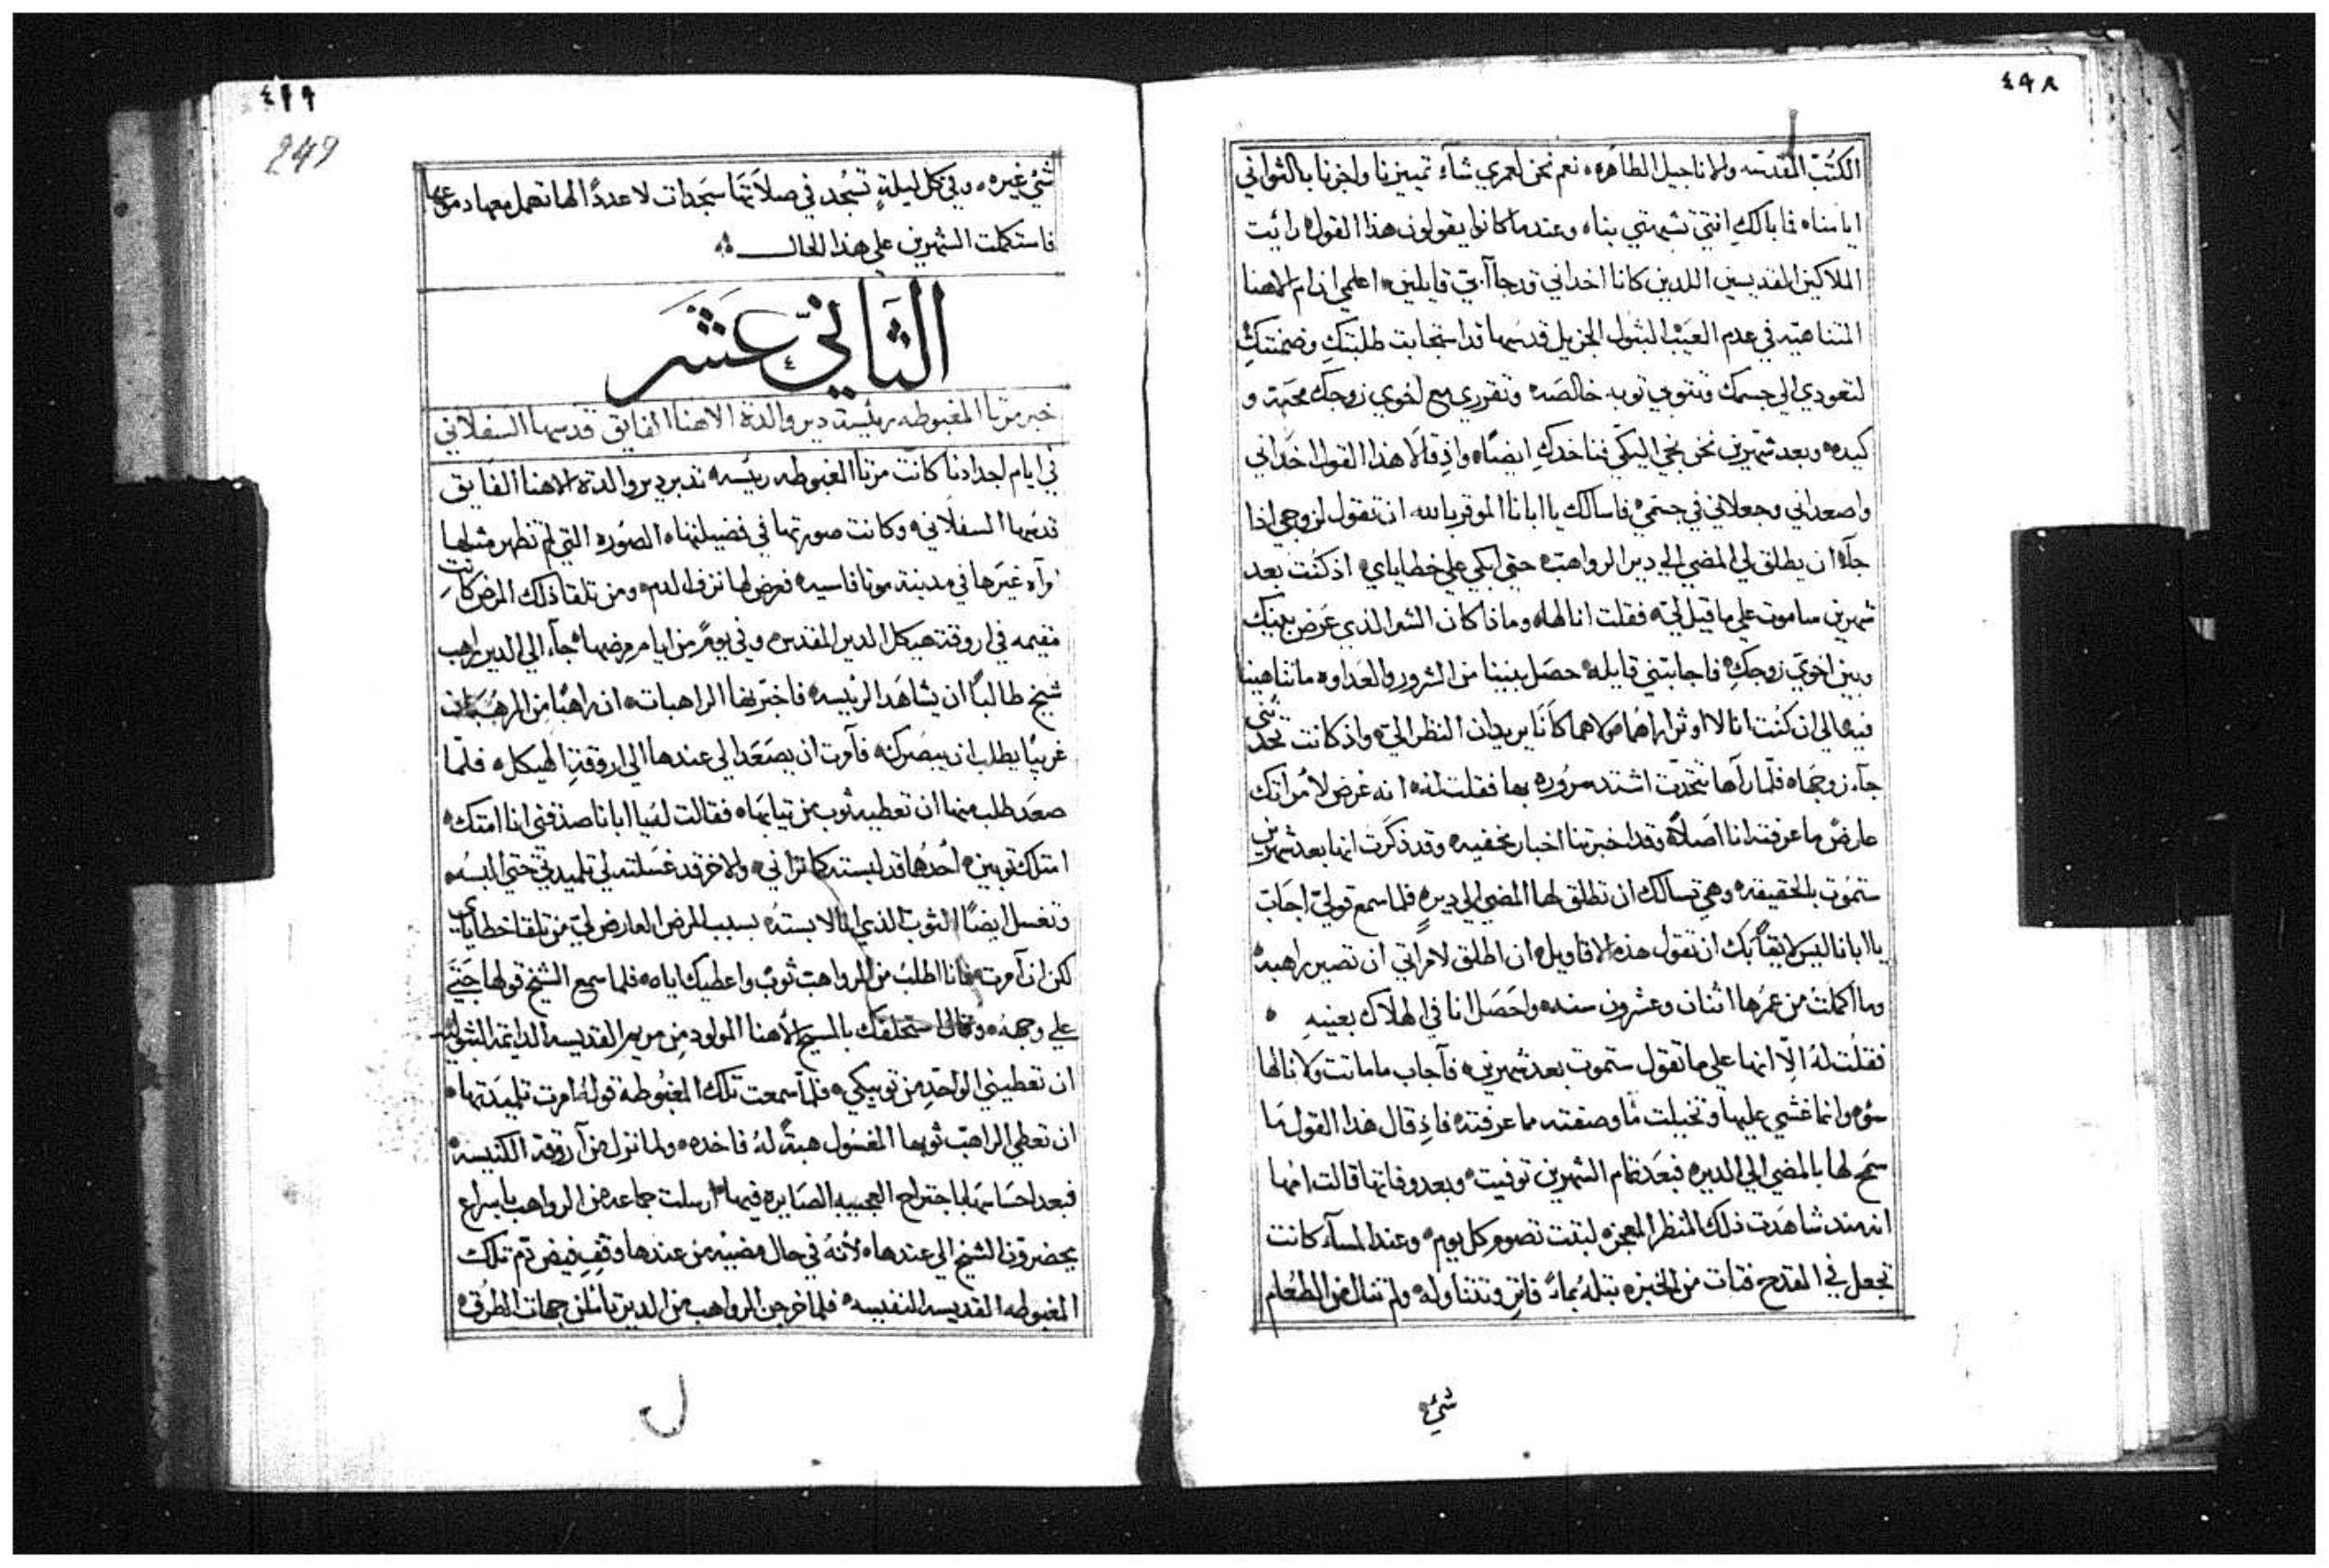 ٤٩٨
الكتب المقدسه والاناجيل الطاهره نعم نحن لعمري شآء تمييزنا واجزنا بالثواني
ايامناه فما بالك انتي تشبهتي بناه وعندما كانوا يقولون هذا القوله رائيت
الملاكين المقديسين اللدين كانا اخداني قد جاآ بي قايلين اعلمي ان ام الاهنا
المتناهيه في عدم العيب البتول الجزيل قدسها قد استجابت طلبتكِ وضمنتكِ
لتعودي الي جسمك وتتوبي توبه خالصه وتقرري مع اخوي زوجك محبة و
كيده وبعد شهرين نحن نجي اليكي نناخدكِ ايضًا واذ قالا هذا القول اخداني
واصعداني وجعلاني في جتمي فاسالك يا ابانا الموقر بالله ان تقول لزوجي اذا
جآه ان يطلق لي المضي الي دير الرواهب حتي ابكي علي خطاياي اذ كنت بعد
شهرين ساموت علي ما قيل لي فقلت انا لها وماذا كان الشر الذي عرض بينك
وبين اخوي زوجكِ فاجابتني قايله حصل بيننا من الشرور والعداوه ما تناهينا
فيه الي ان كنت انا لا اوثر اراهما ولا هما كانا يريدان النظر اليّ واذ كانت تحدثني
جآء زوجها فلما رآها تتحدت اشتد سروره بها فقلت له انه عرض لامراتك
عارض ما عرفته انا اصلاً وقد اخبرتنا اخبار مخفيه وقد ذكرت انها بعد شهرين
ستموت بالحقيقه وهي تسالك ان تطلق لها المضي الي دير فلما سمع قولي اجاب
يا ابانا ليس لايقًا بك ان تقول هذه الاقاويل ان اطلق لامراتي ان تصير راهبه
وما اكملت من عمرها اثنان وعشرون سنه واحصل انا في الهلاك بعينه
فقلت له الّا انها علي ما تقول ستموت بعد شهرين فآجاب ما ماتت ولا نالها
سوء وانما غشي عليها وتخيلت ما وصفته مما عرفته فاذ قال هذا القول ما
سمح لها بالمضي الي الدير فبعد تمام الشهرين توفيت وبعد وفاتها قالت امها
انه مند شاهدت ذلك المنظر المعجز لبتت تصوم كل يوم وعند المسآء كانت
تجعل في القدح فتات من الخبز تبله بمآء فاتر وتتناوله ولم تنال من الطعام
شيء
٤٩٩
249
شيء غيره وفي كل ليلةٍ تسجد في صلاتها سجدات لا عددًا لها تهمل معها دموعها
فاستكملت الشهرين علي هذا الحال
الثاني عشر
خبر مرتا المغبوطه رئيسة دير والدة الاهنا الفايق قدسها السفلاني
في ايام اجدادنا كانت مرتا المغبوطه رئيسه تدبر دير والدة الاهنا الفايق
قدسها السفلانيه وكانت صورتها في فضيلتها الصوره التي لم تظهر مثلها
امرآه غيرها في مدينة مونافاسيه فعرض لها نزف الدم ومن تلقا ذلك المرض كانت
مقيمه في اروقة هيكل الدير المقدس وفي يومٍ من ايام مرضها جآء الي الدير راهب
شيخ طالبًا ان يشاهد الرئيسه فاخبرنها الراهبات ان راهبًا من الرهبان
غريبًا يطلب ان يبصرك فآمرت ان يصعد الي عندها الي اروقة الهيكل فلمّا
صعد طلب منها ان تعطيه ثوب من تيابها فقالت له يا ابانا صدقني انا امتك
امتلك توبين احدهما قد لبسته كما تراني والاخر قد غسلته لي تلميدتي حتي البسه
وتغسل ايضًا الثوب الذي انا لابسته بسبب المرض العارض لي من تلقا خطاياي
لكن ان آمرت فانا اطلب من الرواهب ثوب واعطيك اياه فلما سمع الشيخ قولها جتي
علي وجهه وقال استحلفك بالمسيح الاهنا المولود من مريم القديسه الدايمة البتولية
ان تعطيني الواحد من توبيكي فلما سمعت تلك المغبوطة قوله امرت تلميدتها
ان تعطي الراهب ثوبها المغسول هبةً له فاخده ولما نزل من آروقة الكنيسه
فبعد احساسها باجتراح العجيبه الصايره فيها ارسلت جماعه من الرواهب باسراع
يحضرون الشيخ الي عندها لأنه في حال مضيه من عندها وقف فيض دم تلك
المغبوطه القديسه النفيسه فلما خرجن الرواهب من الدير تاملن جهات الطرق